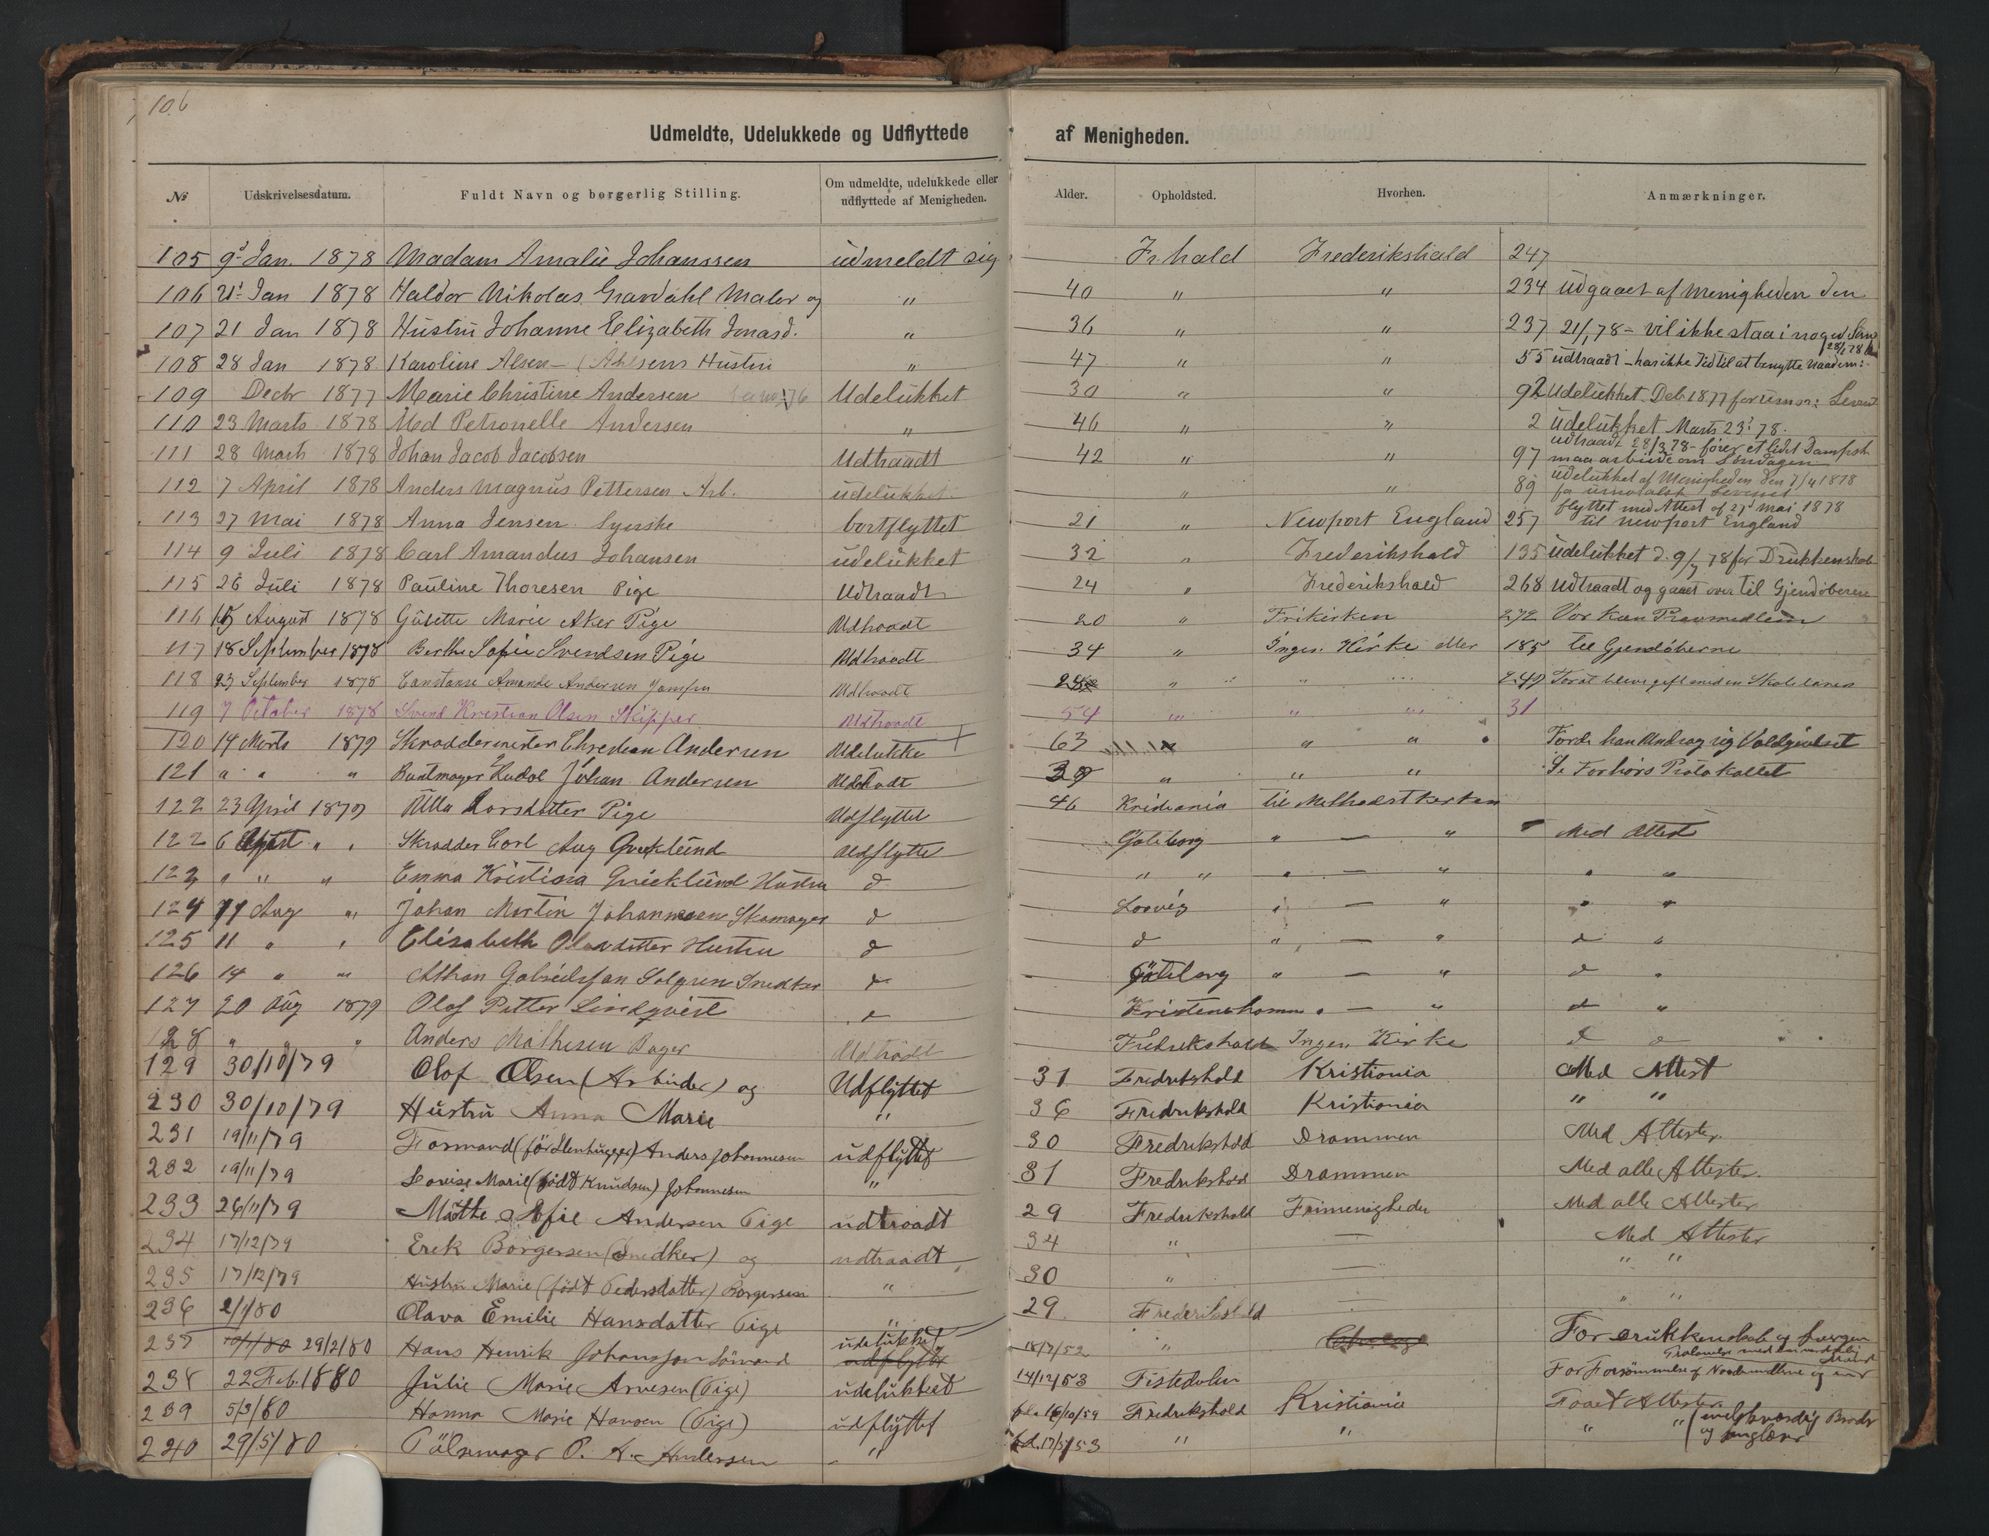 106
Udmeldte, Udelukkede og Udflyttede af Menigheden.
№ Udskrivelsesdatum. Fuldt Navn og borgerlig Stilling. Om udmeldte, udelukkede eller udflyttede af Menigheden. Alder. Opholdsted. Hvorhen. Anmærkninger.
105 9 Jan. 1878 Madam Amalie Johanssen udmeldt sig Frhald Frederikshald 247
106 21 Jan 1878 Haldor Nikolas Gravdahl Maler og " 40 " " 234 udgaaet af Menigheden den
107 21 Jan 1878 Hustru Johanne Elizabeth Jonasd. " 36 " " 237 21/1 78 - vil ikke staa i noged
108 28 Jan 1878 Karoline Alsen - (Ahlsens Hustru " 47 " " 55 udtraadt - har ikke Tid til at benytte Naadem:
109 Decbr 1877 Marie Christine Andersen Udelukket 30 " " 92 Udelukket Deb 1877 for umor: Levnet
110 23 Marts 1878 Md Petronelle Andersen " 46 " " 2 udelukket Marts 23 78.
111 28 Marts 1878 Johan Jacob Jacobsen Udtraadt 42 " " 97 udtraadt 28/3 78 - fører et lidet Dampsk maa arbeide om Søndagen
112 7 April 1878 Anders Magnus Pettersen Arb. udelukket " " 89 udelukket af Menigheden den 7/4 1878
113 27 Mai 1878 Anna Jensen Syerske bortflyttet 21 " Newport England 257 flyttet med Attest af 27 Mai 1878 til Newport England
114 9 Juli 1878 Carl Amandus Johansen udelukket 32 " Frederikshald 135 udelukket d. 9/7 78 for Drukkenskab
115 26 Juli 1878 Pauline Thoresen Pige Udtraadt 24 " Frederikshald 268 udtraadt og gaaet over til Gjendøberne
116 15 August 1878 Gusette Marie Aker Pige Udtraadt 20 " Frikirken 272 Vor kun Prøvemedlem
117 18 September 1878 Berthe Sofie Svendsen Pige Udtraadt 34 " Ingen Kirke eller 185 til Gjendøberne
118 23 September 1878 Constanse Amande Andersen Jomfru Udtraadt " " " 249 Forat bleve gift med en Skolelærer
119 7 October 1878 Svend Kristian Olsen Skipper Udtraadt 54 " " " 31
120 14 Marts 1879 Skræddermester Christian Andersen Udelukke 63 " " Forde han Undrog sig Voldgivelset
121 " " " Buntmager Rudol Johan Andersen Udtradt 39 " " " Se Forhørs Protokollet
122 23 April 1879 Ulla Larsdatter Pige Udflyttet 46 Kristiania til Methodistkerken
122 6 " " Skrædder Carl Aug Quicklund Udflytte Gøteborg " — " Med Attest
123 " " " Emma Kristina Quicklund Hustru d " " " — " " "
124 11 Aug " Johan Martin Johannesen Skomager d Laavig " — " " "
125 11 " " Elisabeth Olsdatter Hustru d d " — " d "
126 14 " " Athan Gabrielsson Solgren Snedker d Gøteborg " — " d "
127 20 Aug 1879 Olof Petter Lindqvist d Kristenshamn " — " d "
128 " " " Anders Mathesen Bager Udtrådt Fredrikshald Ingen Kirke d d
129 30/10/79 Olof Olsen (Arbeider) og Udflyttet 31 Fredrikshald Kristiania Med Attest
230 30/10/79 Hustru Anna Marie " 36 Fredrikshald Kristiania " "
231 19/11/79 Formand Anders Johannesen udflyttet 30 Fredrikshald Drammen Med Attester
232 19/11/79 Lovise Marie (født Knudsen) Johannesen " 31 Fredrikshald Drammen Med alle Attester.
233 26/11/79 Mathe Sofie Andersen Pige udtraadt 29 Fredrikshald Frimenigheden Med alle Attester
234 17/12/79 Erik Borgersen (Snedker) og udtraadt 34 " — Med Attester
235 17/12/79 Hustru Marie (født Pedersdatter) Borgersen " 30 " — " "
236 2/1/80 Olava Emilie Hansdatter Pige " 29 Frederikshald — " "
237 10/1/80 29/2/80 Hans Henrik Johansson Sömand udelukket udflyttet 18/7/52 " For Drukkenskab og
238 22 Feb. 1880 Julie Marie Arvesen (Pige) udelukket 14/12/53 Tistedalen For Forsømmelse af Naademidlene og
239 5/3/80 Hanna Marie Hansen (Pige) udflyttet 16/10/59 Fredrikshald Kristiania Faaet Attester
240 29/5/80 Pölsemager P. A. Andersen " fd. 17/5/53 " " " "